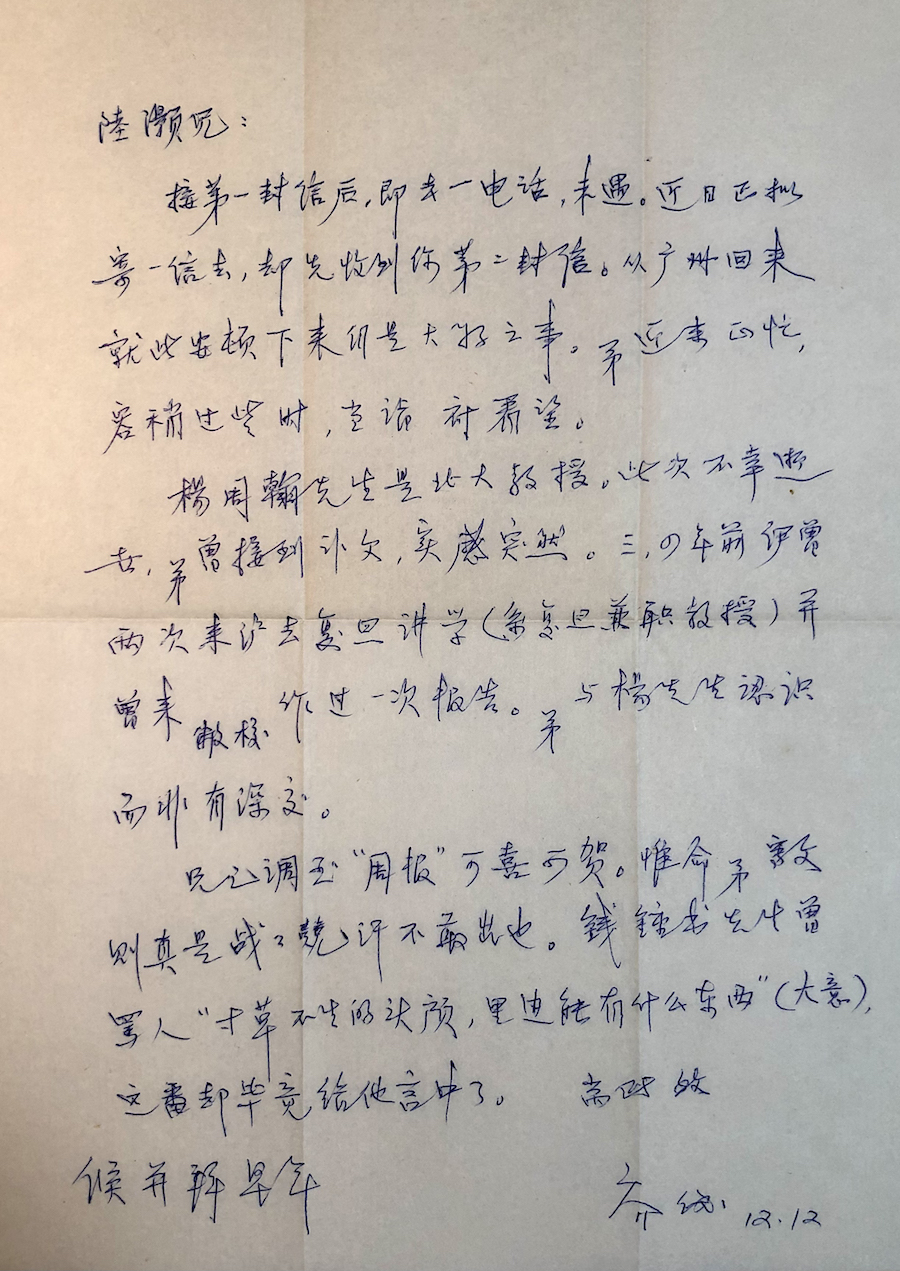 陸灝兄：
接第一封信后，即去一电话，未遇。近日正拟
寄一信去，却先收到你第二封信。从广州回来
就此安顿下来仍是大好之事。弟近来正忙，
容稍过些时，当诣府看望。
楊周翰先生是北大教授。此次不幸逝
世，弟曾接到讣文，实感突然。三，四年前伊曾
两次来沪去复旦讲学（系复旦兼职教授）并
曾来敝校作过一次报告。弟与楊先生認识
而非有深交。
兄之调至“周报”可喜可贺。惟命弟写文
则真是战々兢兢不敢出也。錢鍾书先生曾
骂人“寸草不生的头颅，里边能有什么东西”（大意），
这番却毕竟给他言中了。 耑此 敬
候并拜早年
乔 12.12